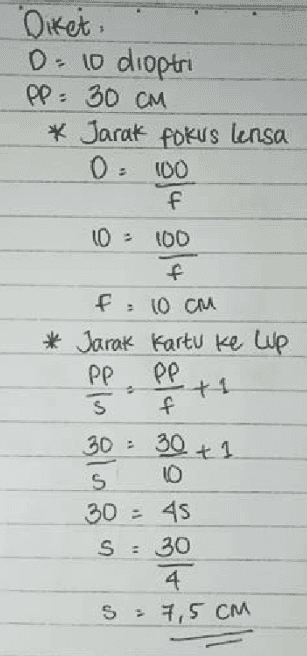 Diket :
D = 10 dioptri
PP = 30 CM
* Jarak fokus lensa
D = 100/f
10 = 100/f
f = 10 CM
* Jarak kartu ke lup
PP/s = PP/f + 1
30/s = 30/10 + 1
30 = 4s
s = 30/4
s = 7,5 CM